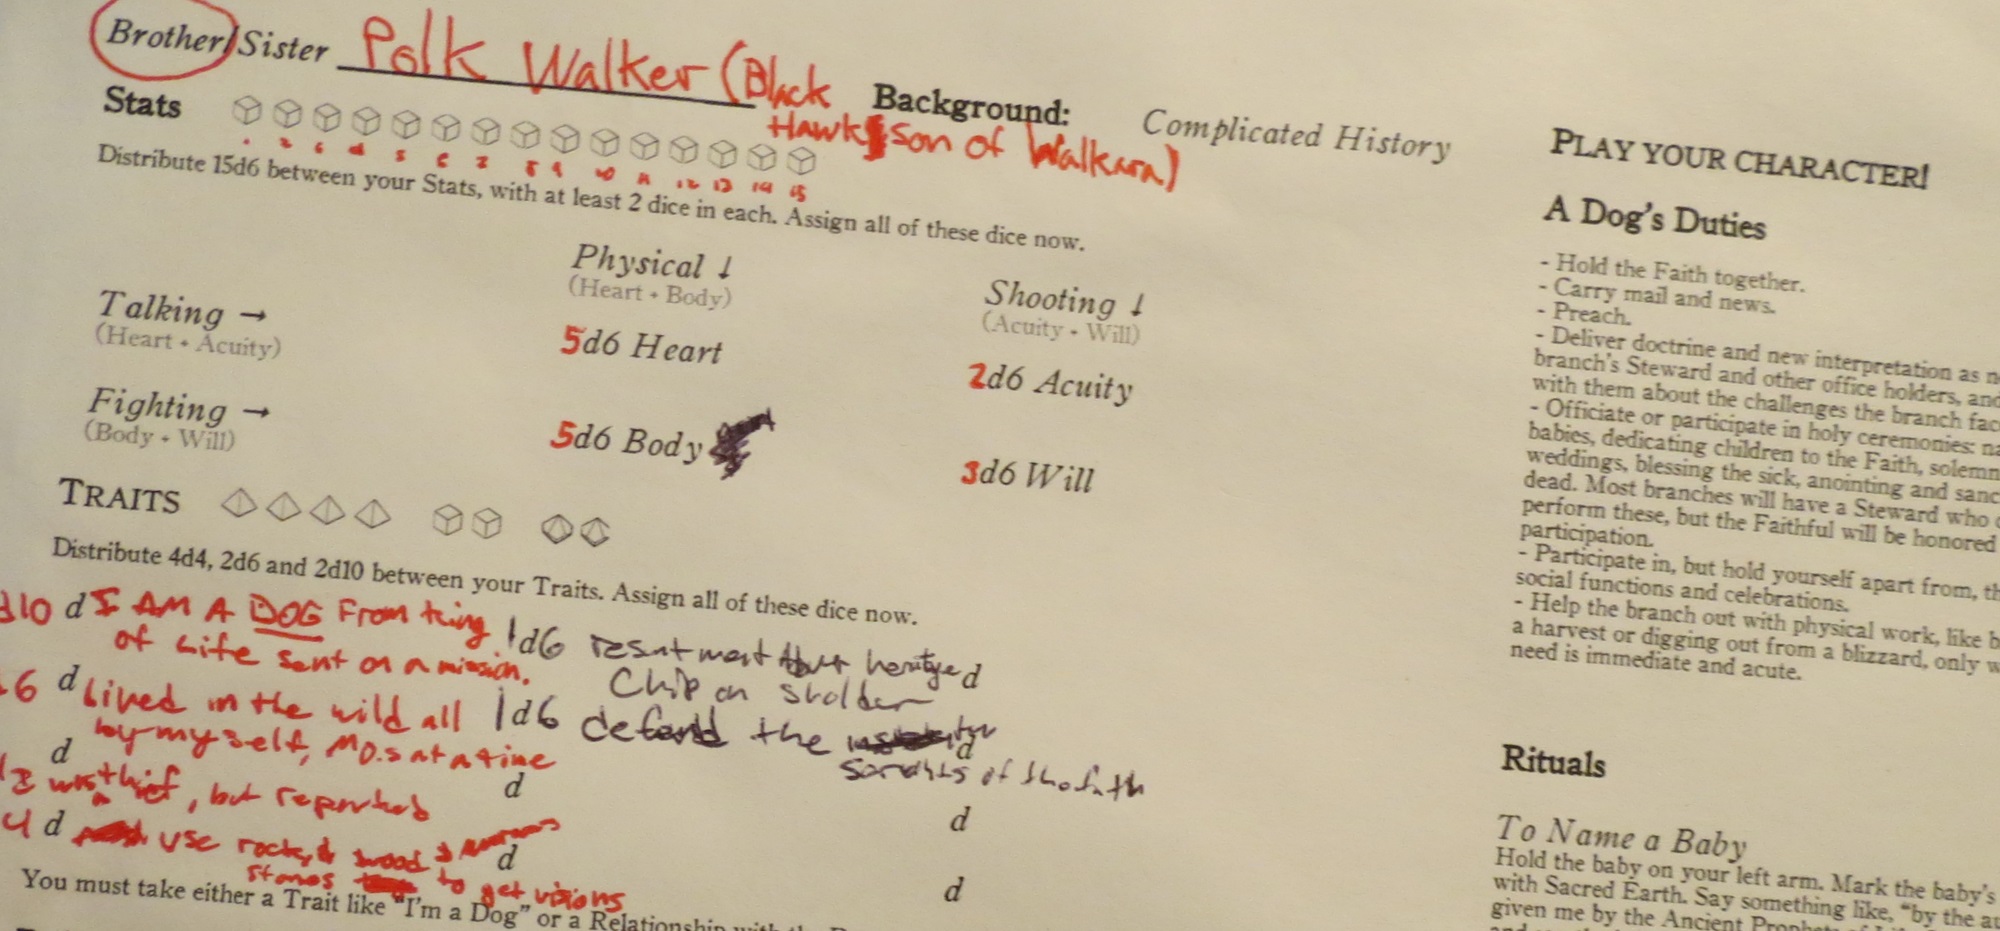 Brother/Sister Polk Walker (Black
Hawk son of Walkara)
Background:
Complicated History
Stats
1 2 3 4 5 6 7 8 9 10 11 12 13 14 15
Distribute 15d6 between your Stats, with at least 2 dice in each. Assign all of these dice now.
Physical ↓
(Heart + Body)
Shooting ↓
(Acuity + Will)
Talking →
(Heart + Acuity)
5d6 Heart
2d6 Acuity
Fighting →
(Body + Will)
5d6 Body
3d6 Will
TRAITS
Distribute 4d4, 2d6 and 2d10 between your Traits. Assign all of these dice now.
10 d I AM A DOG From King
of Life sent on a mission.
1d6 heritage d
Chip on sholder
6 d Lived in the wild all
by myself, Mo.s at a time
1d6 defend the d
of the fath
d
was a thief, but repented
d
d
4 d use rocks & wood &
stones to get visions
d
d
You must take either a Trait like "I'm a Dog" or a Relationship with the
PLAY YOUR CHARACTER!
A Dog's Duties
- Hold the Faith together.
- Carry mail and news.
- Preach.
- Deliver doctrine and new interpretation as
branch's Steward and other office holders, and
with them about the challenges the branch
- Officiate or participate in holy ceremonies:
babies, dedicating children to the Faith,
weddings, blessing the sick, anointing and
dead. Most branches will have a Steward who
perform these, but the Faithful will be honored
participation.
- Participate in, but hold yourself apart from,
social functions and celebrations.
- Help the branch out with physical work, like
a harvest or digging out from a blizzard, only
need is immediate and acute.
Rituals
To Name a Baby
Hold the baby on your left arm. Mark the baby's
with Sacred Earth. Say something like, "by the
given me by the Ancient